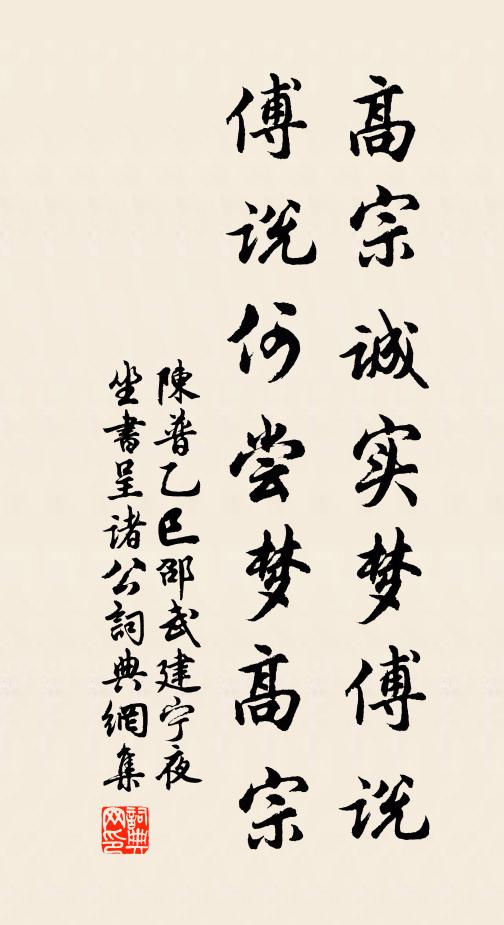 高宗诚实梦傅说
傅说何尝梦高宗
陳普乙巳邵武建宁夜
坐書呈诸公詞典網集
詞典
网印